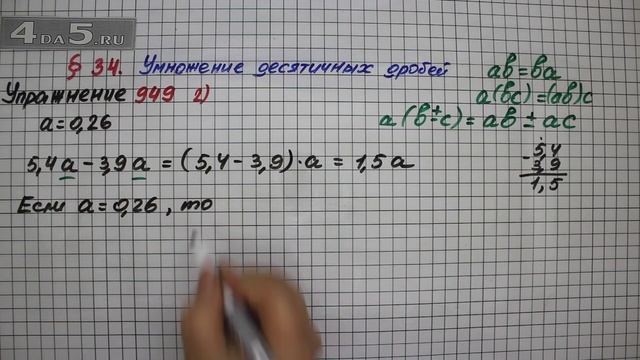 4DA5.RU
§ 34. Умножение десятичных дробей
ab=ba
Упражнение 949 2)
a(bc)=(ab)c
a=0,26
a(b±c)=ab±ac
5,4a-3,9a=(5,4-3,9)·a=1,5a
-5,4
3,9
1,5
Если a=0,26, то